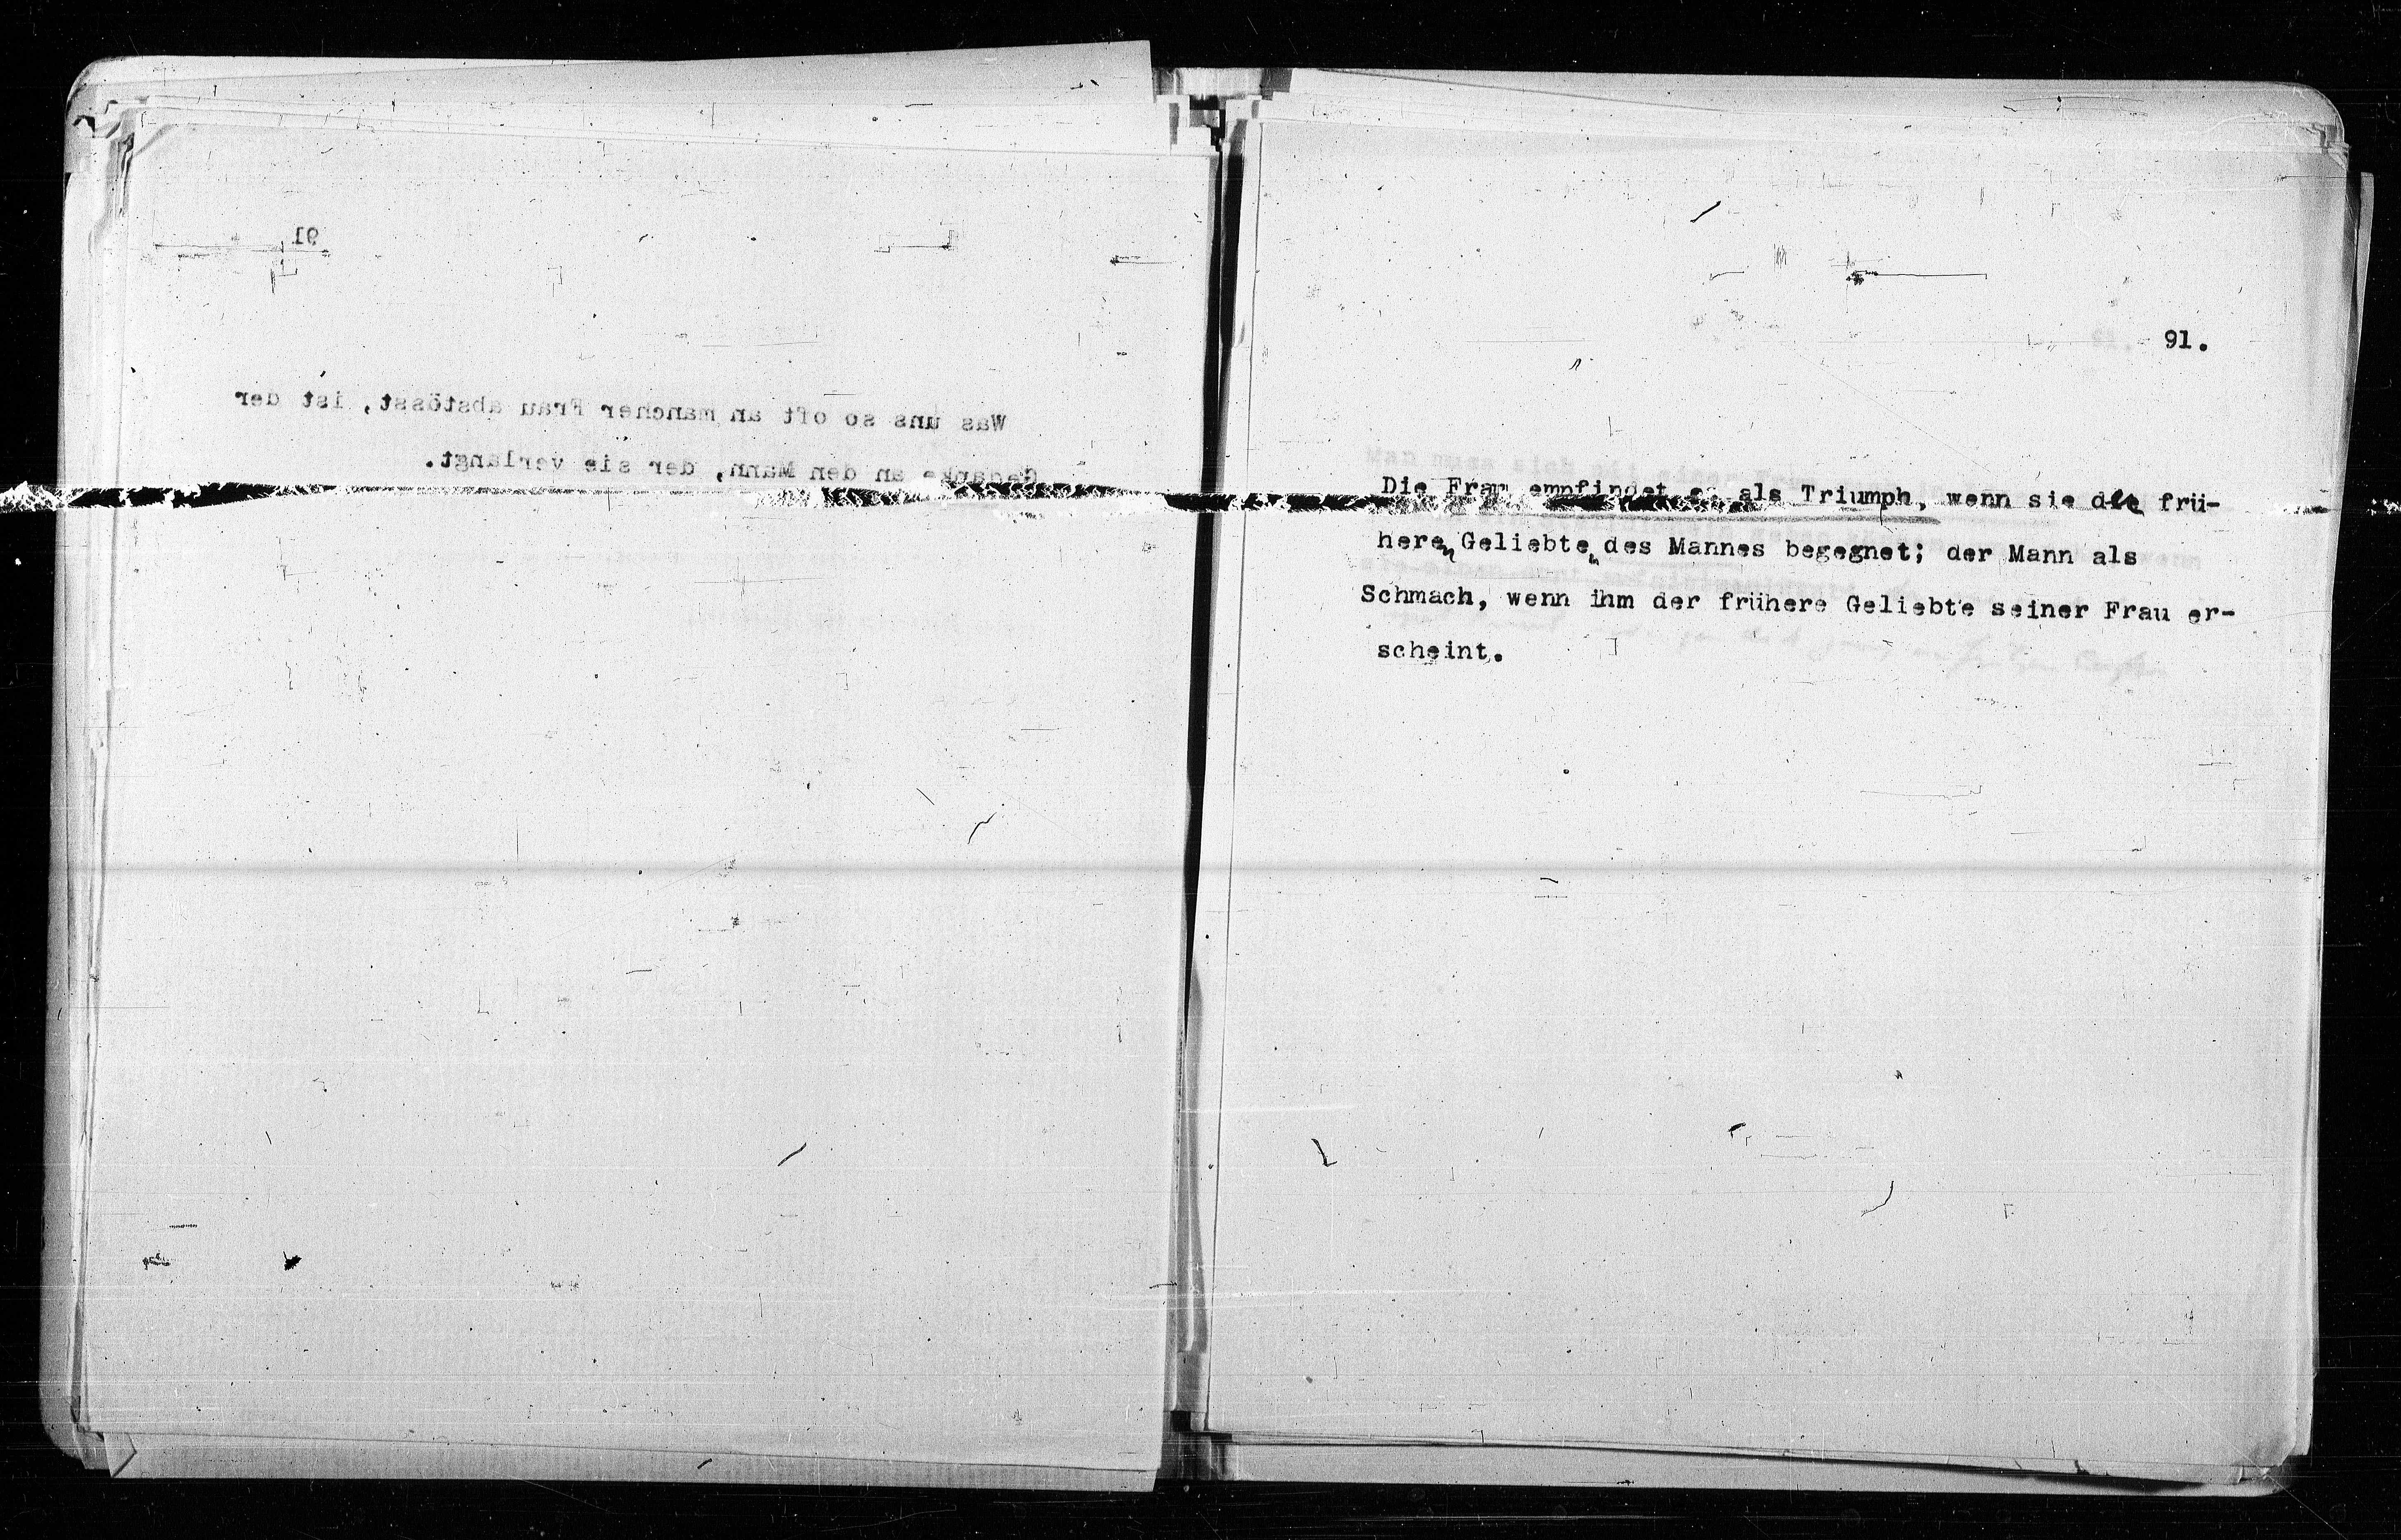 91
Was uns so oft an mancher Frau abstösst, ist der
Gedanke an den Mann, der sie verlangt.
91.
Die Frau empfindet es als Triumph, wenn sie die frü-
heren Geliebten des Mannes begegnet; der Mann als
Schmach, wenn ihm der frühere Geliebte seiner Frau er-
scheint.